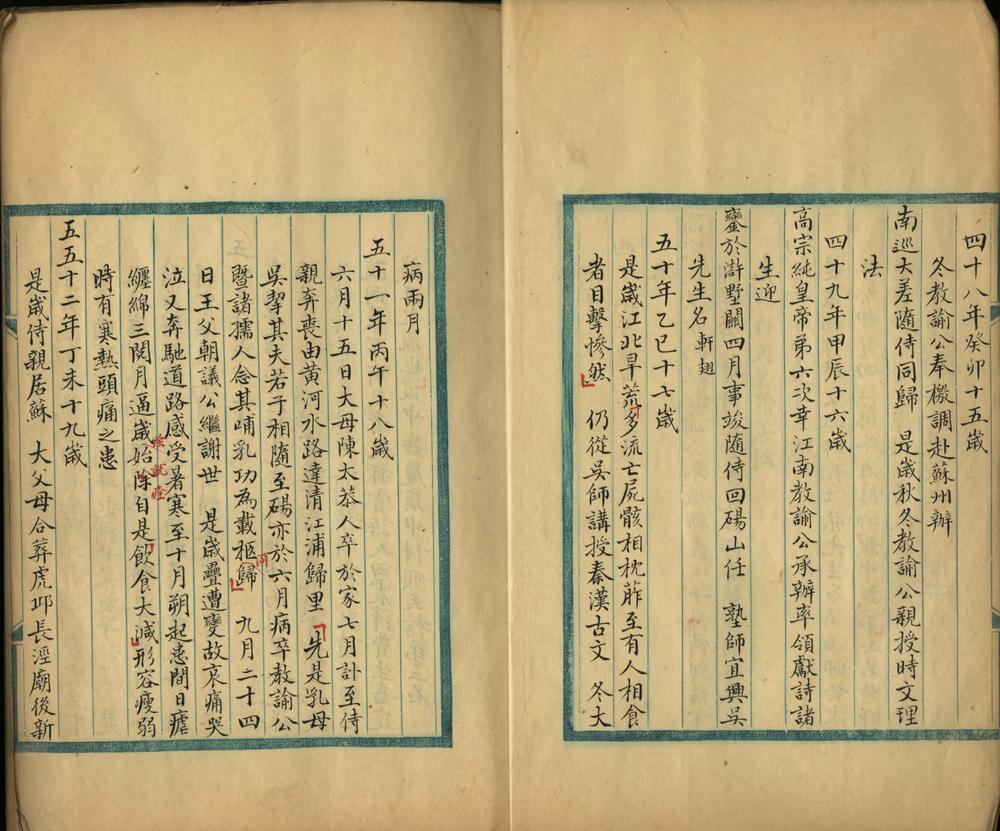 四十八年癸卯十五歲
冬教諭公奉檄調赴蘇州辦
南巡大差隨侍同歸 是歲秋冬教諭公親授時文理
法
四十九年甲辰十六歲
高宗純皇帝弟六次幸江南教諭公承辦率領獻詩諸
生迎
鑾於滸墅關四月事竣隨侍回碭山任 塾師宜興吳
先生名軒翅
五十年乙巳十七歲
是歲江北旱荒多流亡屍骸相枕藉至有人相食
者目擊慘然 仍從吳師講授秦漢古文 冬大
病兩月
五十一年丙午十八歲
六月十五日大母陳太恭人卒於家七月訃至侍
親奔喪由黃河水路達清江浦歸里 先是乳母
吳挈其夫若子相隨至碭亦於六月病卒教諭公
暨諸孺人念其哺乳功為載柩同歸 九月二十四
日王父朝議公繼謝世 是歲疊遭變故哀痛哭
泣又奔馳道路感受暑寒至十月朔起患間日瘧
纏綿三閱月逼歲始除自是飲食大減形容瘦弱
徐就痊
時有寒熱頭痛之患
五五十二年丁未十九歲
是歲侍親居蘇 大父母合葬虎邱長涇廟後新